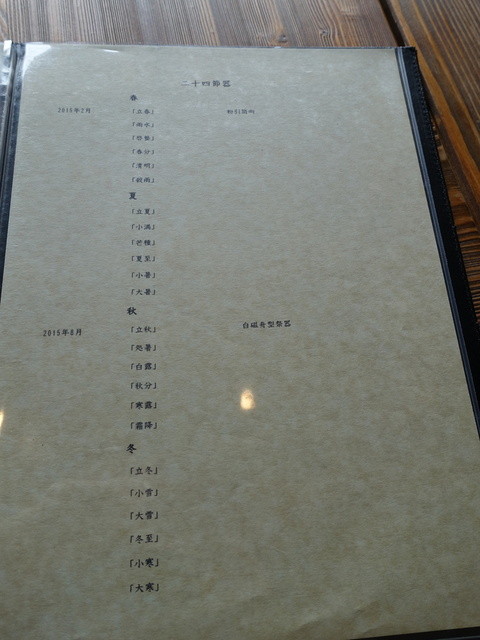 二十四節器
春
2015年2月 「立春」 粉引徳利
「雨水」
「啓蟄」
「春分」
「清明」
「穀雨」
夏
「立夏」
「小満」
「芒種」
「夏至」
「小暑」
「大暑」
秋
2015年8月 「立秋」 白磁舟型祭器
「処暑」
「白露」
「秋分」
「寒露」
「霜降」
冬
「立冬」
「小雪」
「大雪」
「冬至」
「小寒」
「大寒」